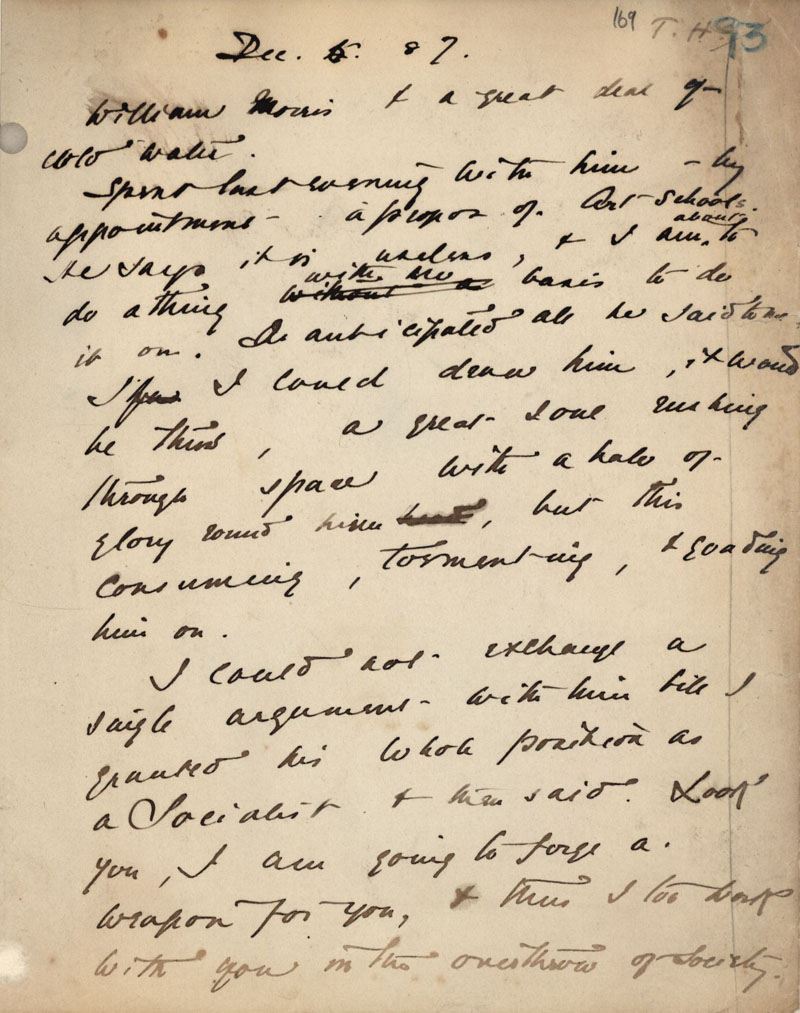 169 T. H. 93
Dec. 5. 87.
William Morris & a great deal of
cold water.
Spent last evening with him – by
appointment – à propos of Art Schools.
He says it is useless, & I am about to
do a thing with no basis to do
it on. I anticipated all he said to me.
I could draw him, it would
be thus, a great soul rushing
through space with a halo of
glory round him, but this
consuming, tormenting, & goading
him on.
I could not exchange a
single argument with him till I
granted his whole position as
a Socialist & then said. Look
you, I am going to forge a
weapon for you, & thus I too work
with you in the overthrow of Society.